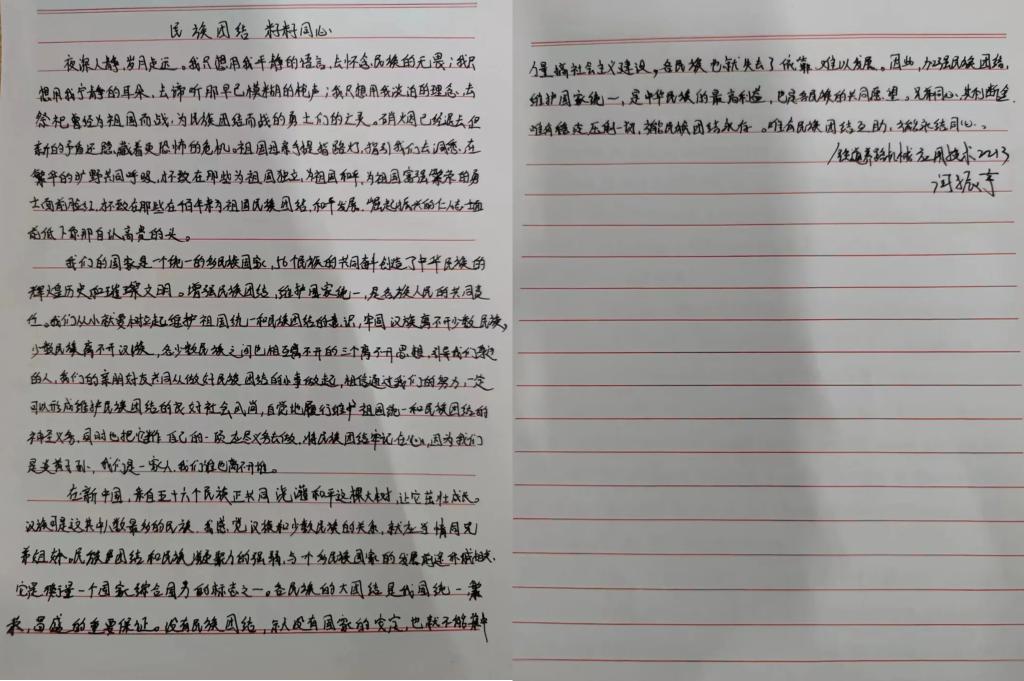 民族团结 籽籽同心
夜深人静,岁月走远。我只想用我平静的语言,去怀念民族的无畏;我只
想用我宁静的耳朵,去谛听那早已模糊的枪声;我只想用我淡泊的理念,去
祭祀曾经为祖国而战,为民族团结而战的勇士们的之灵。硝烟已经退去但
新的矛盾还隐藏着更恐怖的危机。祖国母亲手提着路灯,指引我们去洞悉,在
繁华的旷野共同呼吸,不致在那些为祖国独立,为祖国和平,为祖国富强繁荣的勇
士面前脸红,不致在那些在百年来为祖国民族团结,和平发展,崛起振兴的仁人志士面
前低下你那自认高贵的头。
我们的国家是一个统一的多民族国家,56个民族的共同奋斗创造了中华民族的
辉煌历史和璀璨文明。增强民族团结,维护国家统一,是各族人民的共同责
任。我们从小就要树立起维护祖国统一和民族团结的意识,牢固汉族离不开少数民族,
少数民族离不开汉族,各少数民族之间也相互离不开的三个离不开思想,引导我们身边
的人,我们的亲朋好友共同从做好民族团结的小事做起,相信通过我们的努力,一定
可以形成维护民族团结的良好社会风尚,自觉地履行维护祖国统一和民族团结的
神圣义务,同时也把它当作自己的一项应尽义务去做,将民族团结牢记在心,因为我们
是炎黄子孙,我们是一家人,我们谁也离不开谁。
在新中国,来自五十六个民族正共同浇灌和平这棵大树,让它茁壮成长。
汉族可是这其中人数最多的民族,我感觉汉族和少数民族的关系,就应当情同兄
弟姐妹。民族团结和民族凝聚力的强弱,与一个多民族国家的发展前途休戚相关,
它是衡量一个国家综合国力的标志之一。各民族的大团结是我国统一繁
荣,昌盛的重要保证。没有民族团结,就没有国家的安定,也就不能集中
力量搞社会主义建设,各民族也就失去了依靠,难以发展。因此,加强民族团结,
维护国家统一,是中华民族的最高利益,也是各民族的共同愿望。兄弟同心,其利断金。
唯有稳定压倒一切,才能民族团结永存。唯有民族团结互助,才能永结同心。
铁道养路机械应用技术2213